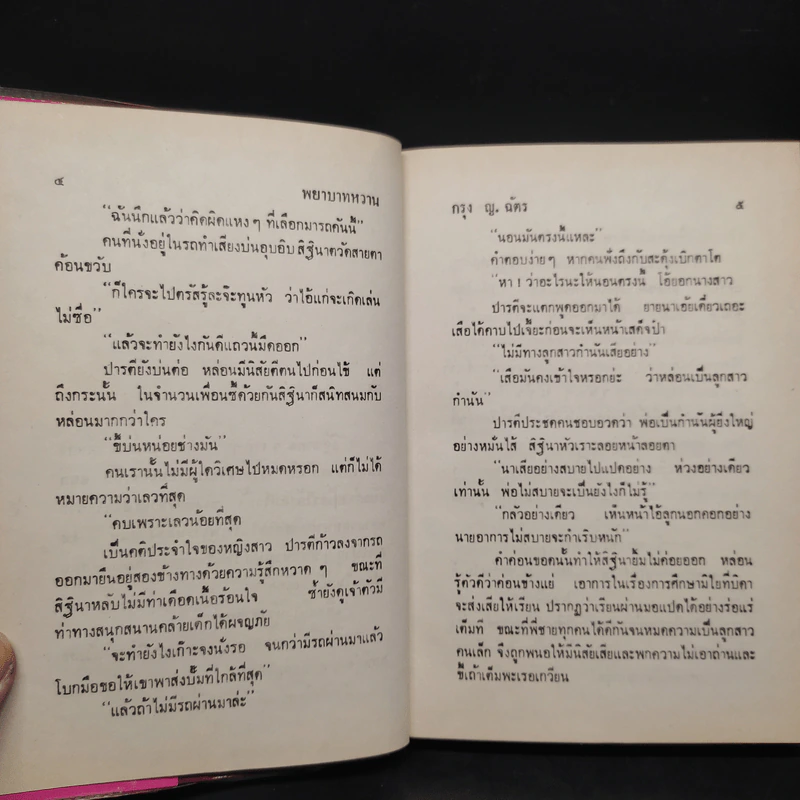 ๔
พยาบาทหวาน
“ฉันนึกแล้วว่าคิดผิดแหง ๆ ที่เลือกมารถคันนี้”
คนที่นั่งอยู่ในรถทำเสียงบ่นอุบอิบ สิฐินาตวัดสายตา
ค้อนขวับ
“ก็ใครจะไปตรัสรู้ละจ๊ะทูนหัว ว่าไอ้แก่จะเกิดเล่น
ไม่ซื่อ”
“แล้วจะทำยังไงกันดีแถวนี้มืดออก”
ปารตียังบ่นต่อ หล่อนมีนิสัยตีตนไปก่อนไข้ แต่
ถึงกระนั้น ในจำนวนเพื่อนซี้ด้วยกันสิฐินาก็สนิทสนมกับ
หล่อนมากกว่าใคร
“ขี้บ่นหน่อยช่างมัน”
คนเรานั้นไม่มีผู้ใดวิเศษไปหมดหรอก แต่ก็ไม่ได้
หมายความว่าเลวที่สุด
“คบเพราะเลวน้อยที่สุด
เป็นคติประจำใจของหญิงสาว ปารตีก้าวลงจากรถ
ออกมายืนอยู่สองข้างทางด้วยความรู้สึกหวาด ๆ ขณะที่
สิฐินาหลับไม่มีท่าเดือดเนื้อร้อนใจ ซ้ำยังดูเจ้าตัวมี
ท่าทางสนุกสนานคล้ายเด็กได้ผจญภัย
“จะทำยังไงเก๊าะจงนั่งรอ จนกว่ามีรถผ่านมาแล้ว
โบกมือขอให้เขาพาส่งปั๊มที่ใกล้ที่สุด”
“แล้วถ้าไม่มีรถผ่านมาล่ะ”
กรุง ญ. ฉัตร
๕
“นอนมันตรงนี้แหละ”
คำตอบง่าย ๆ หากคนฟังถึงกับสะดุ้งเบิกตาโต
“หา ! ว่าอะไรนะให้นอนตรงนี้ โอ้ยอกนางสาว
ปารตีจะแตกพูดออกมาได้ ยายนาเอ้ยเดี๋ยวเถอะ
เสือได้คาบไปเจี๊ยะก่อนจะเห็นหน้าเสด็จป๋า
“ไม่มีทางลูกสาวกำนันเสียอย่าง”
“เสือมันคงเข้าใจหรอกย่ะ ว่าหล่อนเป็นลูกสาว
กำนัน”
ปารตีประชดคนชอบอวดว่า พ่อเป็นกำนันผู้ยิ่งใหญ่
อย่างหมั่นไส้ สิฐินาหัวเราะลอยหน้าลอยตา
“นาเสียอย่างสบายไปแปดอย่าง ห่วงอย่างเดียว
เท่านั้น พ่อไม่สบายจะเป็นยังไงก็ไม่รู้”
“กลัวอย่างเดียว เห็นหน้าไอ้ลูกนอกคอกอย่าง
นายอาการไม่สบายจะกำเริบหนัก”
คำค่อนขอดนั้นทำให้สิฐินายิ้มไม่ค่อยออก หล่อน
รู้ตัวดีว่าค่อนข้างแย่ เอาการในเรื่องการศึกษามิใยที่บิดา
จะส่งเสียให้เรียน ปรากฏว่าเรียนผ่านมอแปดได้อย่างร่อแร่
เต็มที ขณะที่พี่ชายทุกคนได้ดีกันจนหมดความเป็นลูกสาว
คนเล็ก จึงถูกพนอให้มีนิสัยเสียและพกความไม่เอาถ่านและ
ขี้เถ้าเต็มพะเรอเกวียน